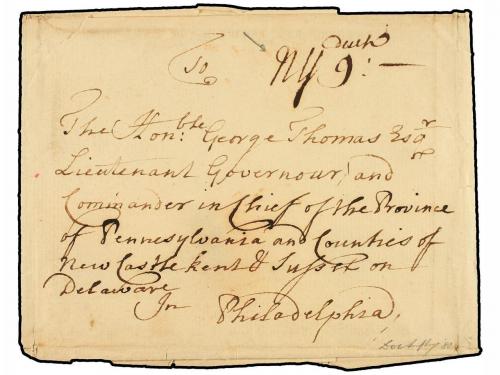 To NY dwtt 9:—
The Honble. George Thomas Esqr
Lieutenant Governour, and
Commander in Chief of the Province
of Pennesylvania and Counties of
New Castle kent & Sussex on
Delaware
In Philadelphia,